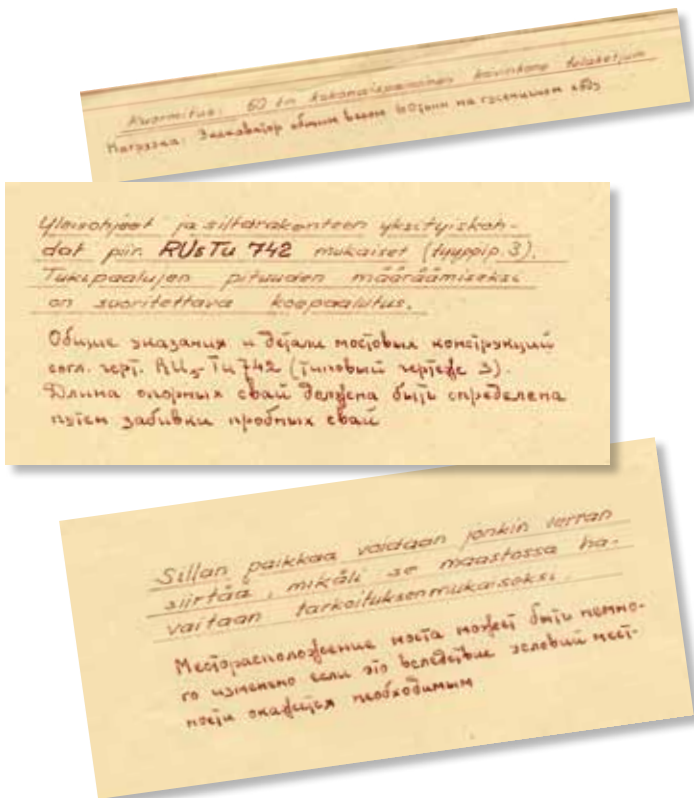 Kuormitus: 60 tn kokonaispainoinen kaivinkone telaketjuin
Нагрузка: Экскаватор общим весом 60 тонн на гусеничном ходу
Yleisohjeet ja siltarakenteen yksityiskoh-
dat piir. RUsTu 742 mukaiset (tyyppip. 3).
Tukipaalujen pituuden määräämiseksi
on suoritettava koepaalutus.
Общие указания и детали мостовых конструкций
согл. черт. RUs-Tu 742 (типовый чертеж 3).
Длина опорных свай должна быть определена
путем забивки пробных свай
Sillan paikkaa voidaan jonkin verran
siirtää, mikäli se maastossa ha-
vaitaan tarkoituksenmukaiseksi.
Месторасположение моста может быть немно-
го изменено если это вследствие условий мест-
ности окажется необходимым